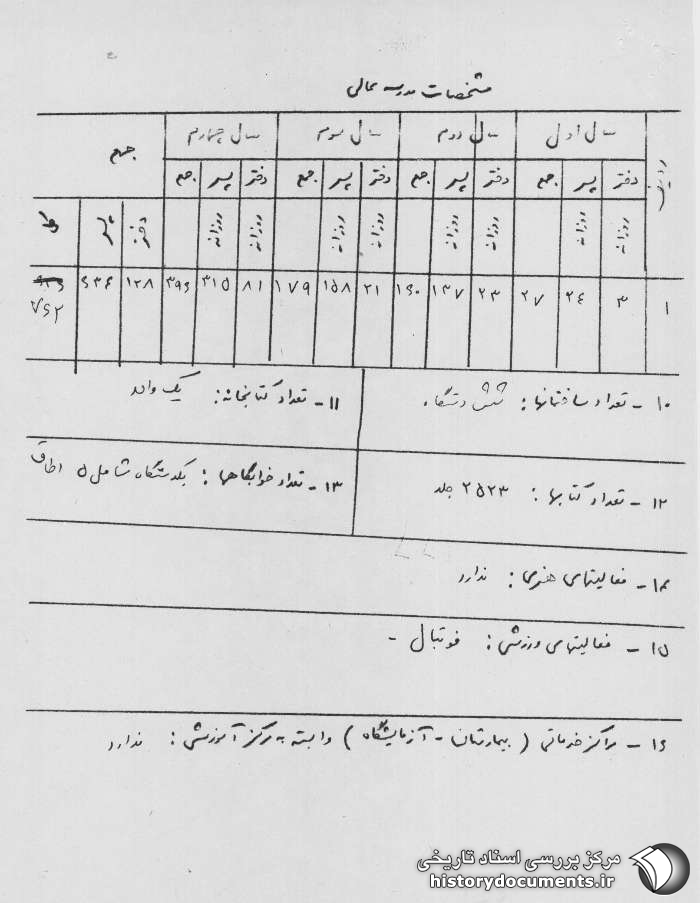 مشخصات مدرسه عالی
ردیف سال اول سال دوم سال سوم سال چهارم جمع
دختر پسر جمع دختر پسر جمع دختر پسر جمع دختر پسر جمع
روزانه روزانه روزانه روزانه روزانه روزانه روزانه روزانه دختر پسر
۱ ۳ ۲۴ ۲۷ ۲۳ ۱۳۷ ۱۶۰ ۲۱ ۱۵۸ ۱۷۹ ۸۱ ۳۱۵ ۳۹۶ ۱۲۸ ۶۳۴
۷۶۲
۱۰- تعداد ساختمانها: شش دستگاه
۱۱- تعداد کتابخانه: یک واحد
۱۲- تعداد کتابها: ۲۵۲۳ جلد
۱۳- تعداد خوابگاهها: یکدستگاه شامل ۵ اطاق
۱۴- فعالیتهای هنری: ندارد
۱۵- فعالیتهای ورزشی: فوتبال -
۱۶- مراکز خدماتی (بیمارستان - آزمایشگاه) وابسته به مرکز آموزشی: ندارد
مرکز بررسی اسناد تاریخی
historydocuments.ir